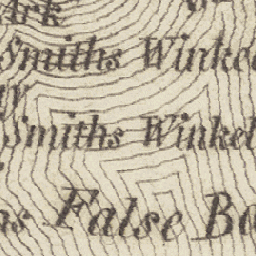 Ark
Smiths Winke
ay
Smiths Winkel
as False Ba